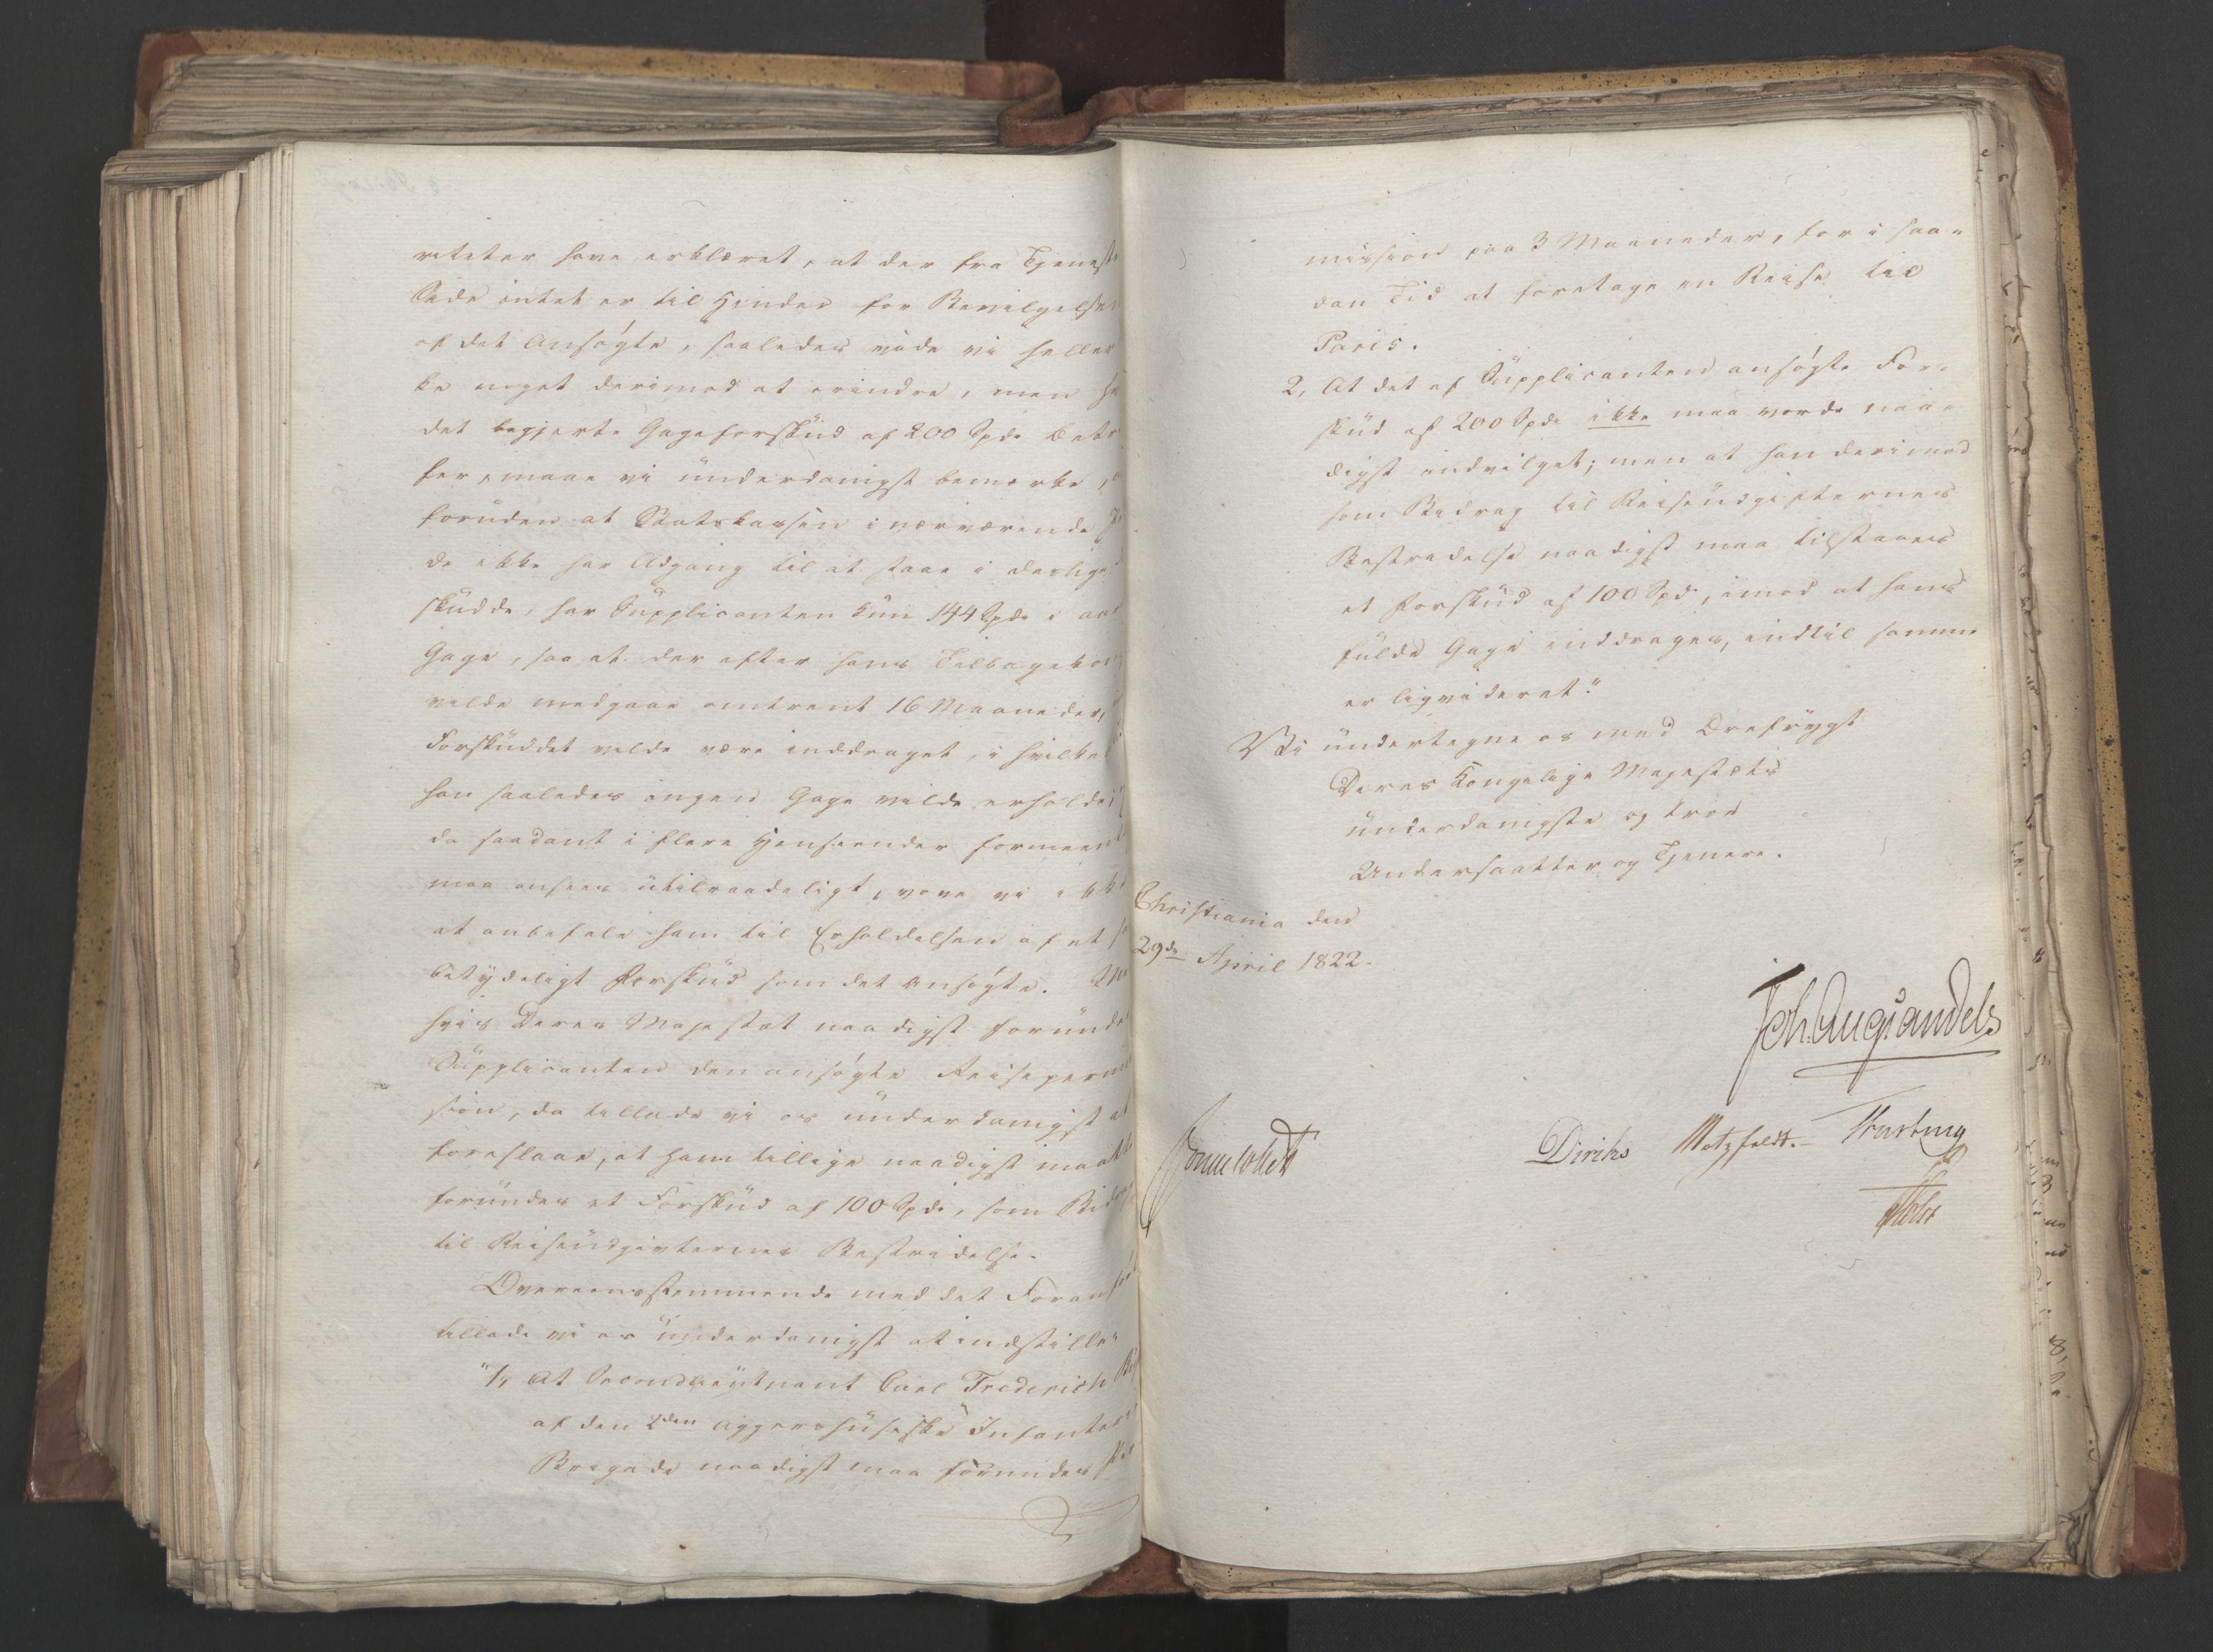 riteter have erklæret, at der fra Tjeneste
Side intet er til Hinder for Bevilgelsen
af det Ansøgte, saaledes vide vi heller
ke noget derimod at erindre, men
det begjerte Gageforskud af 200 Spd.
fer, maae vi underdanigst bemærke,
foruden at Statskassen i nærværende
de ikke har Adgang til at staae i deslige
skudde, har Supplicanten kun 144 Spd. i
Gage, saa at der efter hans Tilbagekom
vilde medgaae omtrent 16 Maaneder,
Forskuddet vilde være inddraget, i hvilke
han saaledes ingen Gage vilde erholde;
da saadant i flere Henseender formeent
maa ansees utilraadeligt, vove vi ikke
at anbefale ham til Erholdelsen af et
betydeligt Forskud som det ansøgte.
hvis Deres Majestæt naadigst forunder
Supplicanten den ansøgte Reiseperm
sion, da tillade vi os underdanigst at
foreslaae, at ham tillige naadigst maatte
forundes et Forskud af 100 Spd., som Bidrag
til Reiseudgivternes Bestridelse.
Overeensstemmende med det Foran
tillade vi os underdanigst at indstille:
"1, At Secondlieutnant Carl Frederich
af den 2den Aggershusiske Infanterie
Brigade naadigst maa forundes Per
mission paa 3 Maaneder, for i saa-
dan Tid at foretage en Reise til
Paris.
2, At det af Supplicanten ansøgte For-
skud af 200 Spd. ikke maa vorde naa-
digst indvilget; men at han derimod
som Bidrag til Reiseudgifternes
Bestridelse naadigst maa tilstaaes
et Forskud af 100 Spd., imod at hans
fulde Gage inddrages, indtil samme
er liqvideret."
Vi undertegne os med Ærefrygt
Deres Kongelige Majestæts
underdanigste og troe
Undersaatter og Tjenere.
Christiania den
29de April 1822.
Joh. Aug. Sandels
Sommerhielm
Diriks Motzfeldt.
Holst